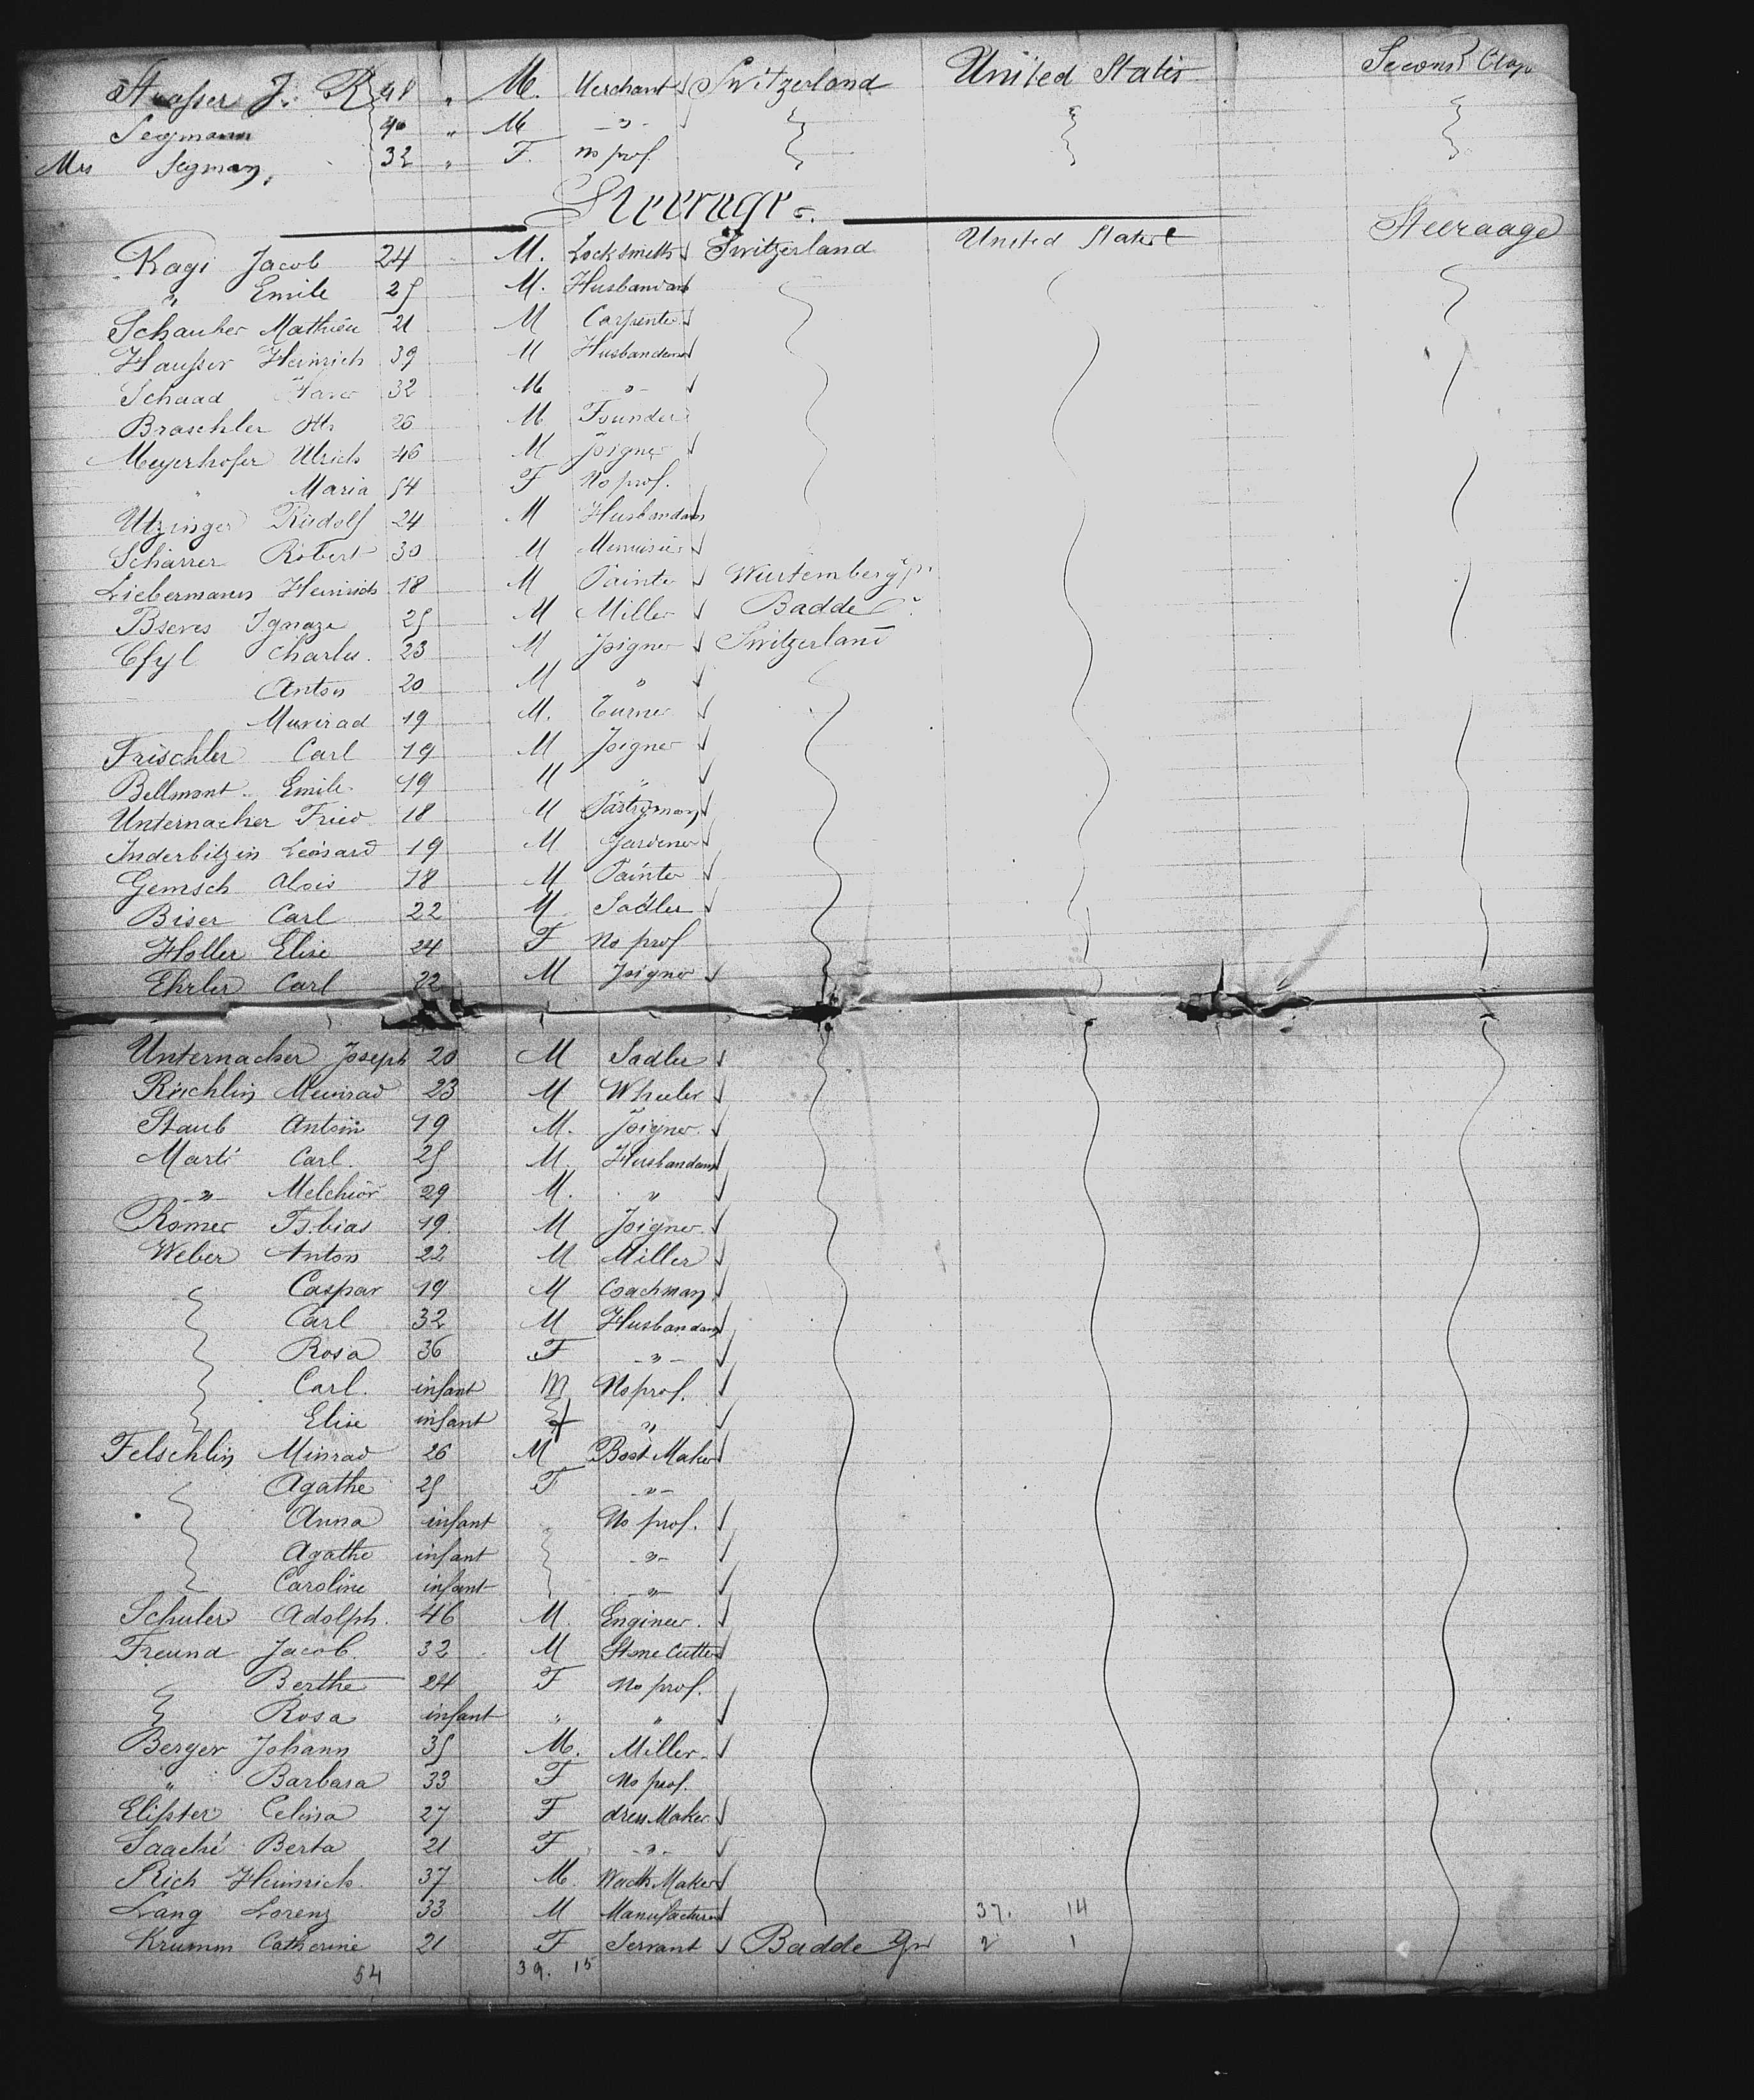 Strasser J. R 48 " M. Merchant Switzerland United States Second Class
Segmann 40 " M -"-
Mrs Segman, 32 " F. no prof.
Steerage.
Kagi Jacob 24 M. Locksmith Switzerland United States Steeraage
" Emile 25 M. Husbandan
Schauber Mathieu 21 M Carpenter
Hausser Heinrich 39 M Husbandan
Schaad 32 M -"-
Braschler Hh 26 M Founder
Meyerhofer Ulrich 46 M Joigner
" Maria 54 F No prof.
Utzinger Rudolf 24 M Husbandan
Scharrer Robert 30 M Menuisier
Liebermann Heinrich 18 M Painter Wurtemberg
Bseres Ignaze 25 M Miller Badde
Gfyl Charles. 23 M Joigner Switzerland
Anton 20 M "
Murirad 19 M. Turner
Frischler Carl 19 M Joigner
Bellmont Emile 19 M "
Unternacher Fried 18 M Pastryman
Inderbitzin Leonard 19 M Gardener
Gemsch Alois 18 M Painter
Biser Carl 22 M Sadler
Holler Elise 24 F No prof
Ehrler Carl 22 M Joigner
Unternacher Joseph 20 M Sadler
Ruchlin Meinrad 23 M Wheeler
Staub Antoin 19 M. Joigner.
Marti Carl. 25 M. Husbandan
-"- Melchior 29 M. "
Romer Tobias 19. M Joigner
Weber Anton 22 M Miller
Caspar 19 M Coachman
Carl 32 M Husbandan
Rosa 36 F -"-
Carl. infant M No prof.
Elise infant f "
Felschlin Minrad 26 M Boot Maker
Agathe 25 F -"-
Anna infant No prof.
Agathe infant -"-
Caroline infant -"-
Schuler Adolph. 46 M. Engineer.
Freund Jacob. 32 M Stone Cutter
Berthe 24 F No prof.
Rosa infant " "
Berger Johann 35 M. Miller.
" Barbara 33 F No prof.
Elisster Celina 27 F dress Maker
Saaché Berta 21 F -"-
Rich Heinrich. 37 M. Wacth Maker
Lang Lorenz 33 M Manufacturer 37. 14
Krumm Catherine 21 F Servant Badde 2 1
54 39. 15